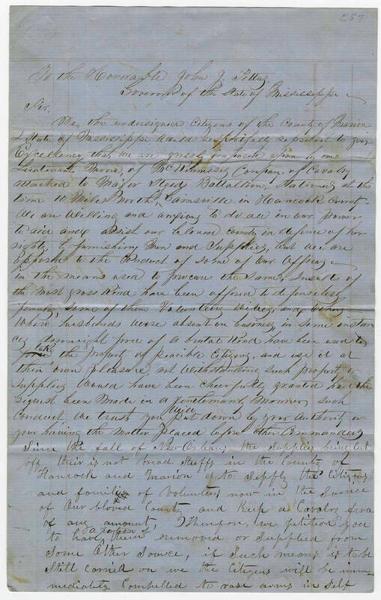 257
To the Honorable John J. Pettus
Governor of the State of Mississippi
Sir,
We, the undersigned Citizens of the County of Marion
State of Mississippi would respectfully represent to your
Excellency that we are grossly imposed upon by one
Lieutenant of Company of Cavalry
attached to Major Steeds Battalion, Stationed at this
time Miles North Gainsville in Hancock County
We are willing and anxious to do all in our power
to aid and assist our beloved country in defence of her
rights by furnishing Men and Supplies, but we are
opposed to the Conduct of some of our Officers
in the means used to procure the Same. Insults of
the most gross kind have been offered to defenceless
females, some of them Volunteers Wives, and others
whose husbands were absent on business, in some instan
ces downright force of a brutal kind have been used to
take the property of peaceible Citizens, and use it at
their own pleasure, not withstanding such property
Supplies would have been cheerfully granted had the
request been made in a gentlemanly manner, such
conduct we trust you will put down by your Authority
your having the matter placed before their Commanders
Since the fall of New Orleans, the supplies being cut
off, their is not bread stuffs in the County of
Hancock and Marion to supply the Citizens
and families of Volunteers now in the Service
of Our beloved Country and Keep a Cavalry force
of any amount, Therefore, we petition you
to have them or a portion removed or supplied from
some other source, if such means is to be
still carried on we the Citizens will be imm
ediately compelled to rase arms in Self